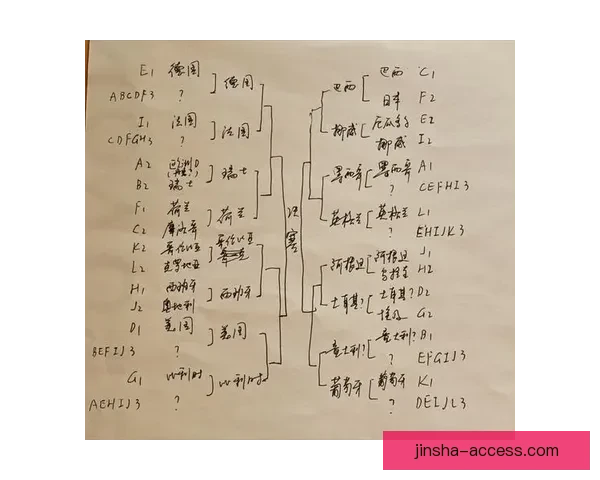 E1 德国
ABCDF3 ?
德国
I1 法国
CDFGH3 ?
法国
A2 欧洲D
B2 瑞士
瑞士
F1 荷兰
C2 摩洛哥
荷兰
K2 哥伦比亚
L2 克罗地亚
哥伦比亚
H1 西班牙
J2 奥地利
西班牙
D1 美国
BEFIJ3 ?
美国
G1 比利时
AEHIJ3 ?
比利时
决赛
巴西
巴西 C1
日本 F2
挪威
厄瓜多尔 E2
挪威 I2
墨西哥
墨西哥 A1
? CEFHI3
英格兰
英格兰 L1
? EHIJK3
阿根廷
阿根廷 J1
乌拉圭 H2
土耳其?
土耳其? D2
埃及 G2
意大利?
意大利? B1
? EFGIJ3
葡萄牙
葡萄牙 K1
? DEIJL3
jinsha-access.com